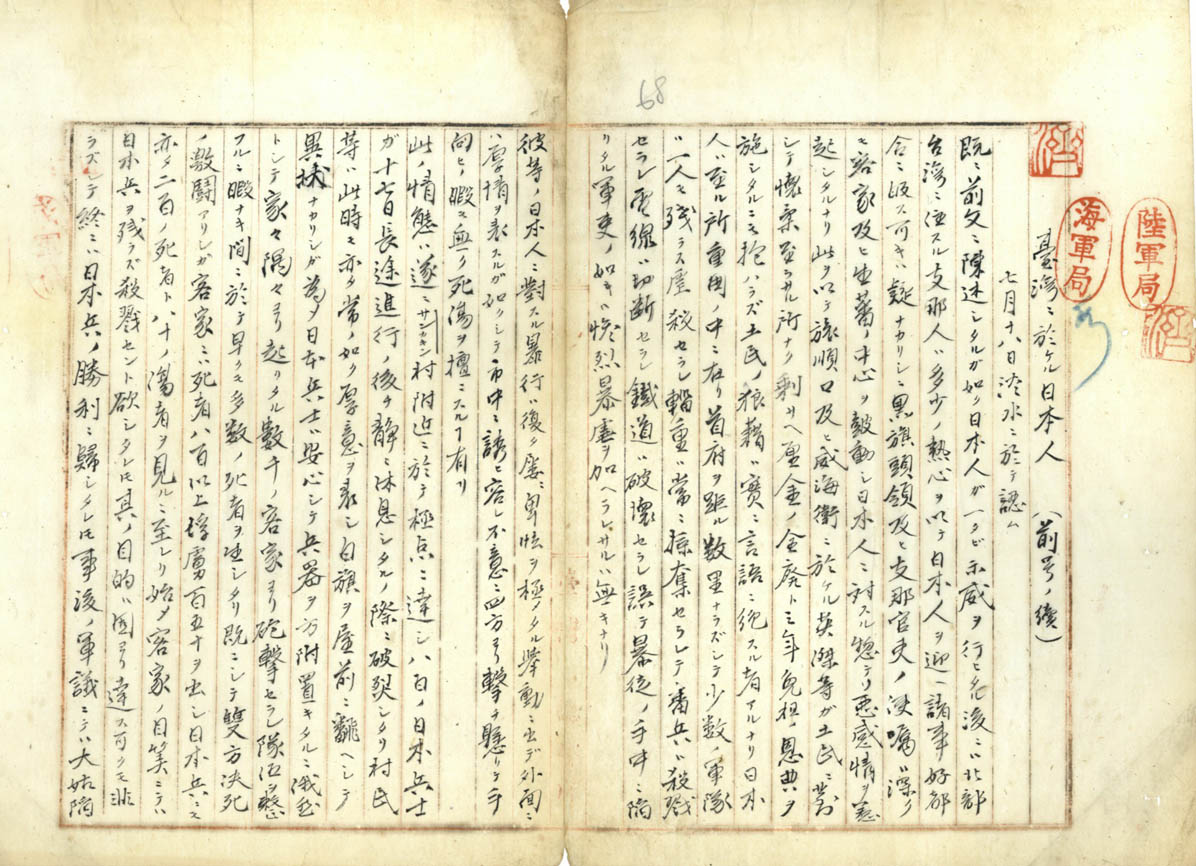 68
陸軍局
海軍局
臺灣ニ於ケル日本人 (前号ノ續)
七月十八日淡水ニ於テ認ム
既ニ前文ニ陳述シタルガ如ク日本人ガ一タビ示威ヲ行ヒタル後ニハ北部
台湾ニ住スル支那人ハ多少ノ熱心ヲ以テ日本人ヲ迎ヘ諸事好都
合ニ至ス可キハ疑ナカリシニ黒旗頭領及ヒ支那官吏ノ浸嘱ハ深ク
モ客家及ヒ生蕃ノ中心ヲ皷動シ日本人ニ対スル惣テノ悪感情ヲ惹
起シタルナリ此ヲ以テ旅順口及ヒ威海衛ニ於ケル英傑等ガ土民ニ對
シテ懐柔至ラサル所ナク剰サヘ厘金ノ全廃ト三年免租ノ恩典ヲ
施シタルニモ抱ハラズ土民ノ狼藉ハ實ニ言語ニ絶スル者アルナリ日本
人ハ至ル所重囲ノ中ニ在リ首府ヲ距ル数里ナラズシテ少数ノ軍隊
ハ一人モ残ラス屠殺セラレ輜重ハ常ニ掠奪セラレテ番兵ハ殺戮
セラレ電線ハ切断セラレ鐵道ハ破壊セラレ誤テ暴徒ノ手中ニ陥
リタル軍吏ノ如キハ惨烈暴虐ヲ加ヘラレサルハ無キナリ
彼等ノ日本人ニ對スル暴行ハ復タ屡々卑怯ヲ極メタル挙動ニ出デ外面ニ
ハ厚情ヲ表スルガ如クシテ市中ニ誘ヒ容レ不意ニ四方ヨリ撃チ懸リテ手
向ヒノ暇モ無ク死傷ヲ擅ニスルヿ有リ
此ノ情態ハ遂ニサンキン村附近ニ於テ極点ニ達シ八百ノ日本兵士
ガ十七日長途進行ノ後チ静ニ休息シタルノ際ニ破裂シタリ村民
等ハ此時モ亦タ常ノ如ク厚意ヲ表シ白旗ヲ屋前ニ翻ヘシテ
異状ナカリシガ為メ日本兵士ハ安心シテ兵器ヲ方附置キタルニ俄然
トシテ家々隅々ヨリ起リタル數千ノ客家ヨリ砲撃セラレ隊伍ヲ整
フルニ暇ナキ間ニ於テ早クモ多数ノ死者ヲ生シタリ既ニシテ雙方決死
ノ激鬪アリシガ客家ニハ死者八百以上俘虜百五十ヲ出シ日本兵ニモ
亦タ二百ノ死者ト八十ノ傷者ヲ見ルニ至レリ始メ客家ノ目算ニテハ
日本兵ヲ残ラズ殺戮セント欲シタレ𪜈其ノ目的ハ固ヨリ達ス可クモ非
ラズシテ終ニハ日本兵ノ勝利ニ歸シタレ𪜈事後ノ軍議ニテハ大姑陥